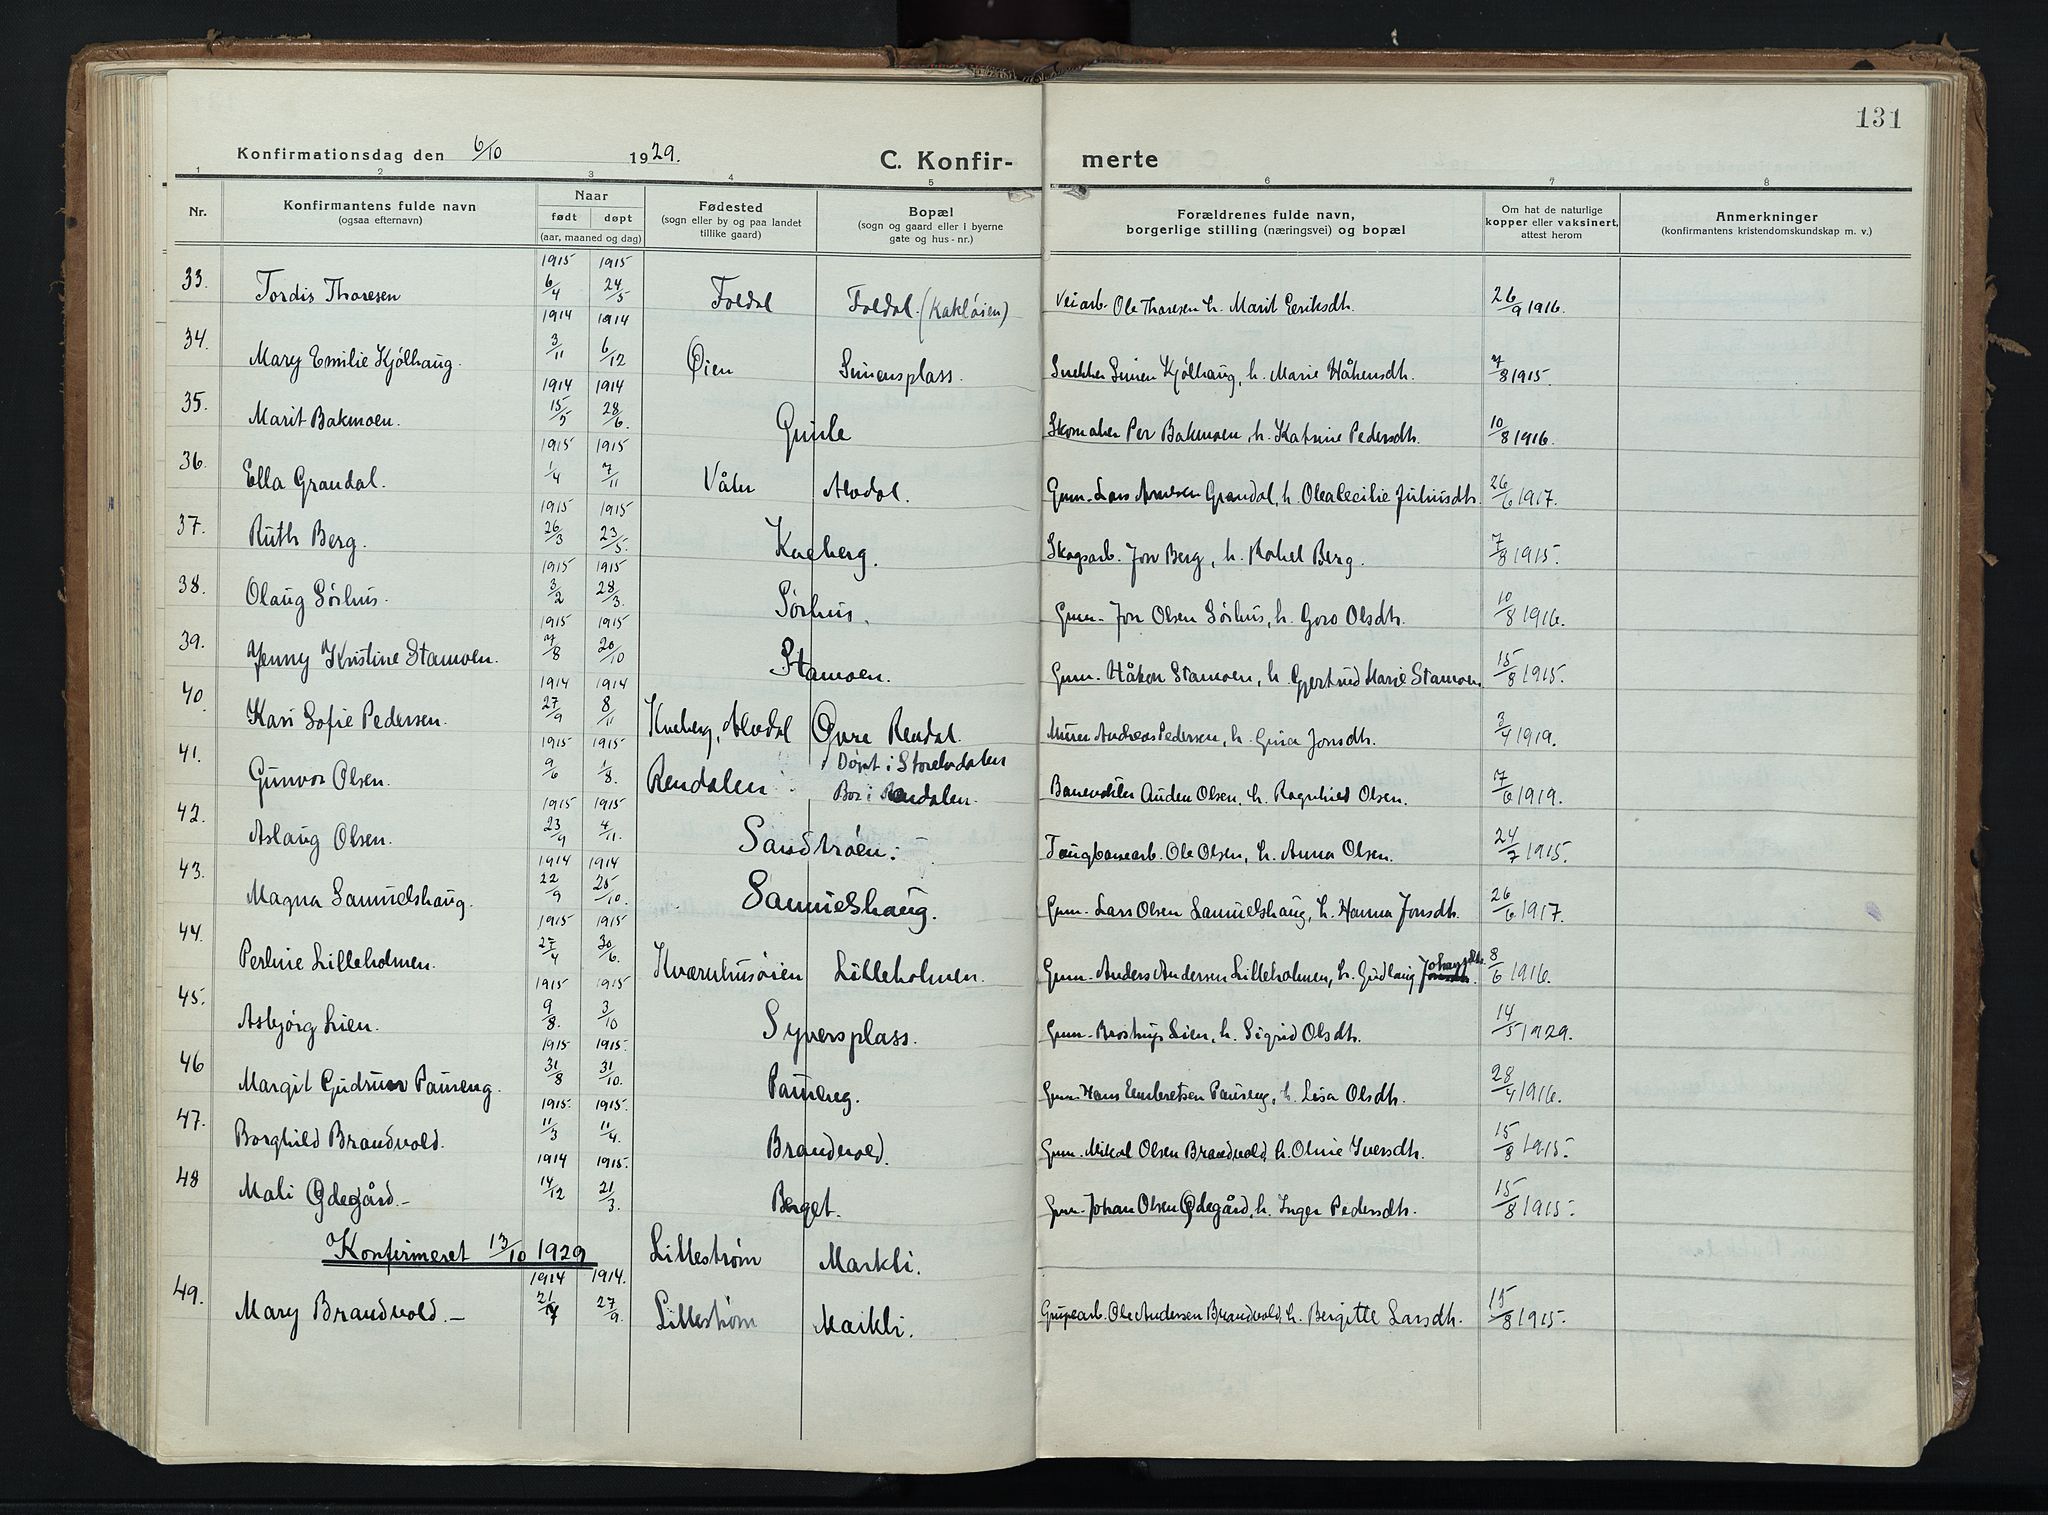 131
Konfirmationsdag den 6/10 1929. C. Konfir- merte
1 2 3 4 5 6 7 8
Nr. Konfirmantens fulde navn (ogsaa efternavn) Naar født døpt (aar, maaned og dag) Fødested (sogn eller by og paa landet tillike gaard) Bopæl (sogn og gaard eller i byerne gate og hus-nr.) Forældrenes fulde navn, borgerlige stilling (næringsvei) og bopæl Om hat de naturlige kopper eller vaksinert, attest herom Anmerkninger (konfirmantens kristendomskundskap m. v.)
33. Tordis Thoresen 1915 6/4 1915 24/5 Foldal Foldal. (Kakløien) Veiarb. Ole Thoresen h. Marit Eeriksdh. 26/9 1916.
34. Mary Emilie Kjølhaug. 1914 3/11 1914 6/12 Øien Simensplass. Snekker Simen Kjølhaug, h. Marie Håkensdh. 7/8 1915.
35. Marit Bakmoen. 1914 15/5 1914 28/6. Skomaker Per Bakmoen, h. Katrine Pedersdh. 10/8 1916.
36. Ella Grandal. 1915 1/4 1915 7/11 Alvdal. Gmn. Lars Arnesen Grandal, h. Olea Cecilie Juliusdh. 26/6 1917.
37. Ruth Berg. 1915 26/3 1915 23/5. Kveberg. Skogsarb. Jon Berg, h. Rakel Berg. 7/8 1915.
38. Olaug Sørhus. 1915 3/2 1915 28/3. Sørhus. Gmn. Jon Olsen Sørhus, h. Goro Olsdh. 10/8 1916.
39. Jenny Kristine Stamoen. 1915 7/8 1915 20/10 Stamoen. Gmn. Håkon Stamoen, h. Gjertrud Marie Stamoen. 15/8 1915.
40. Kari Sofie Pedersen. 1914 27/9 1914 8/11 Kveberg, Alvdal Øvre Rendal. Murer Andreas Pedersen, h. Gina Jonsdh. 3/4 1919.
41. Gunvor Olsen. 1915 9/6 1915 1/8. Rendalen Døpt i Storelvdalen
Bor i Rendalen. Banevokter Auden Olsen, h. Ragnhild Olsen. 17/6 1919.
42. Aslaug Olsen. 1915 23/9 1915 4/11. Sandtrøen. Taugbanearb. Ole Olsen, h. Anna Olsen. 24/7 1915.
43. Magna Samuelshaug. 1914 22/9 1914 25/10. Samuelshaug. Gmn. Lars Olsen Samuelshaug, h. Hanna Jonsdh. 26/6 1917.
44. Perline Lilleholmen. 1915 27/4 1915 30/6. Kværnhusøien Lilleholmen. Gmn. Anders Andersen Lilleholmen, h. Gudlaug 8/6 1916.
45. Asbjørg Lien. 1915 9/8. 1915 3/10 Syversplass. Gmn. Brostrup Lien, h. Sigrid Olsdh. 14/5 1929.
46 Margit Gudrun Pauseng. 1915 31/8 1915. 31/10. Pauseng. Gmn. Hans Embretsen Pauseng, h. Lisa Olsdh. 28/4 1916.
47. Borghild Brandvold. 1915. 11/3 1915. 11/4. Brandvold. Gmn. Mikal Olsen Brandvold, h. Oline Iversdh. 15/8 1915.
48 Mali Ødegård.- 1914 14/12 1915. 21/3. Berget. Gmn. Johan Olsen Ødegård, h. Inger Pedersdh. 15/8 1915.
Konfirmeret 13/10 1929 Lillestrøm Markli.
49. Mary Brandvold.- 1914 21/7 1914. 27/9. Lillestrøm Markli. Grubearb. Ole Andersen Brandvold, h. Bergitte Larsdh. 15/8 1915.